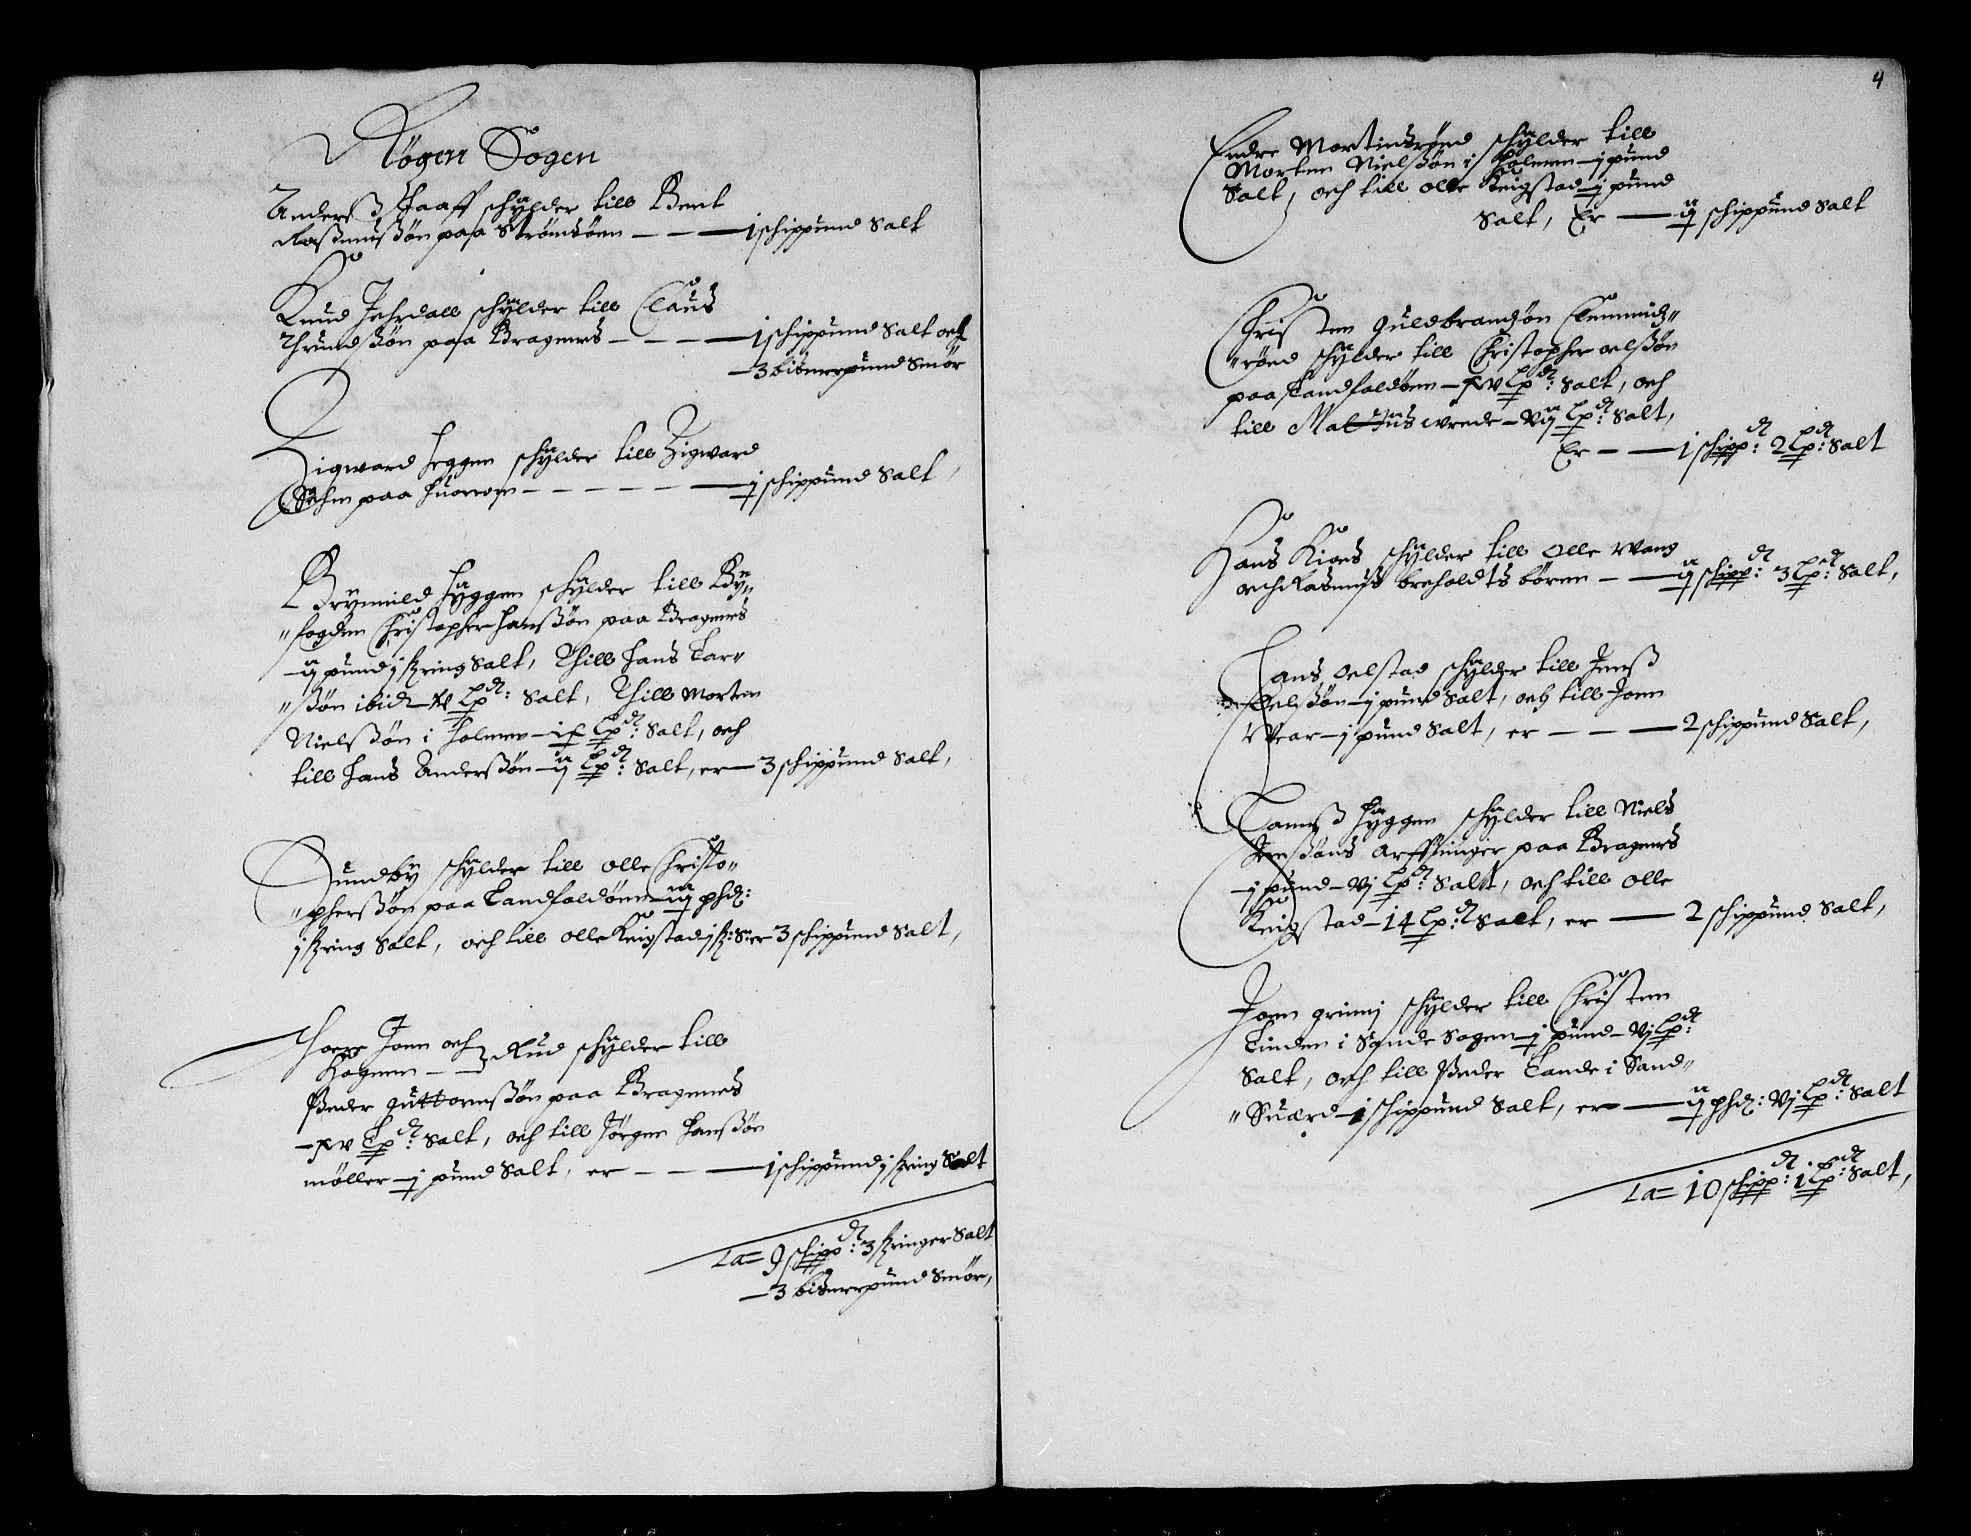 Røgen Sogen
Anderß Haaff schÿlder till Bent
Raßmußøn paa Strömsöen — — — 1 schippund Salt
Knud Jehrdall schÿlder till Claus
Thrundßøn paa Bragenes — — — 1 schippund Salt och
— 3 bismerpund Smör
Zigward Heggen schÿlder till Zigward
Sehm paa Huorom — — — — — — j schippund Salt,
Brÿnnild Hÿggen schÿlder till Bÿ„
„fogden Christopher Hanßøn paa Bragenes
— ij pund j fzring Salt, Thill Hans Lar„
„ßøn ibid — xv Lpd: Salt, Thill Morten
Nielßøn i Holmen — ix Lpd: Salt, och
till Hans Anderßøn — ij Lpd: Salt, er — 3 schippund Salt,
Sundbÿ schÿlder till Olle Christo„
„pherßøn paa Tandfaldöen — iij phd:
j fzring Salt, och till Olle Keigstad j fz: S: er 3 schippund Salt,
Thore Joen och
Hogenn — Rud schÿlder till
Peder Guttormßøn paa Bragenes
— xv Lpd: Salt, och till Jörgen Hanßøn
möller — j pund Salt, er — — — 1 schippund j fzring Salt
La= 9 schippd: 3 fzringer Salt
— 3 bismerpund Smör,
4
Endre Mortensröed schÿlder till
Morten Nielßøn i Holmen — j pund
Salt, och till Olle Keigstad — j pund
Salt, Er — ij schippund Salt
Christen Guldbrandßøn Clemmidz„
„röed schÿlder till Christopher Oelßøn
paa Tandfaldöen — xv Lpd: Salt, och
till Mattÿs Wrede — vij Lpd: Salt,
Er — — 1 schippd: 2 Lpd: Salt
Hans Kioes schÿlder till Olle Wang
och Rasmus breholdts bören — — ij schippd: 3 Lpd: Salt,
Hans Oelstad schÿlder till Jenß
Oelßøn — j pund Salt, och till Joen
Wear — j pund Salt, er — — — 2 schippund Salt,
Tameß Hÿggen schÿlder till Niels
Jenßøns Arffuinger paa Bragenes
— j pund — vj Lpd: Salt, och till Olle
Keigstad — 14 Lp:d Salt, er — 2 schippund Salt,
Joen grimj schÿlder till Christen
Linden i Sande Sogen — j pund — vj Lpd:
Salt, och till Peder Lande i Sand„
„Suærd — 1 schippund Salt, er — ij phd: vj Lpd: Salt
La= 10 schippd: 1 Lpd: Salt,